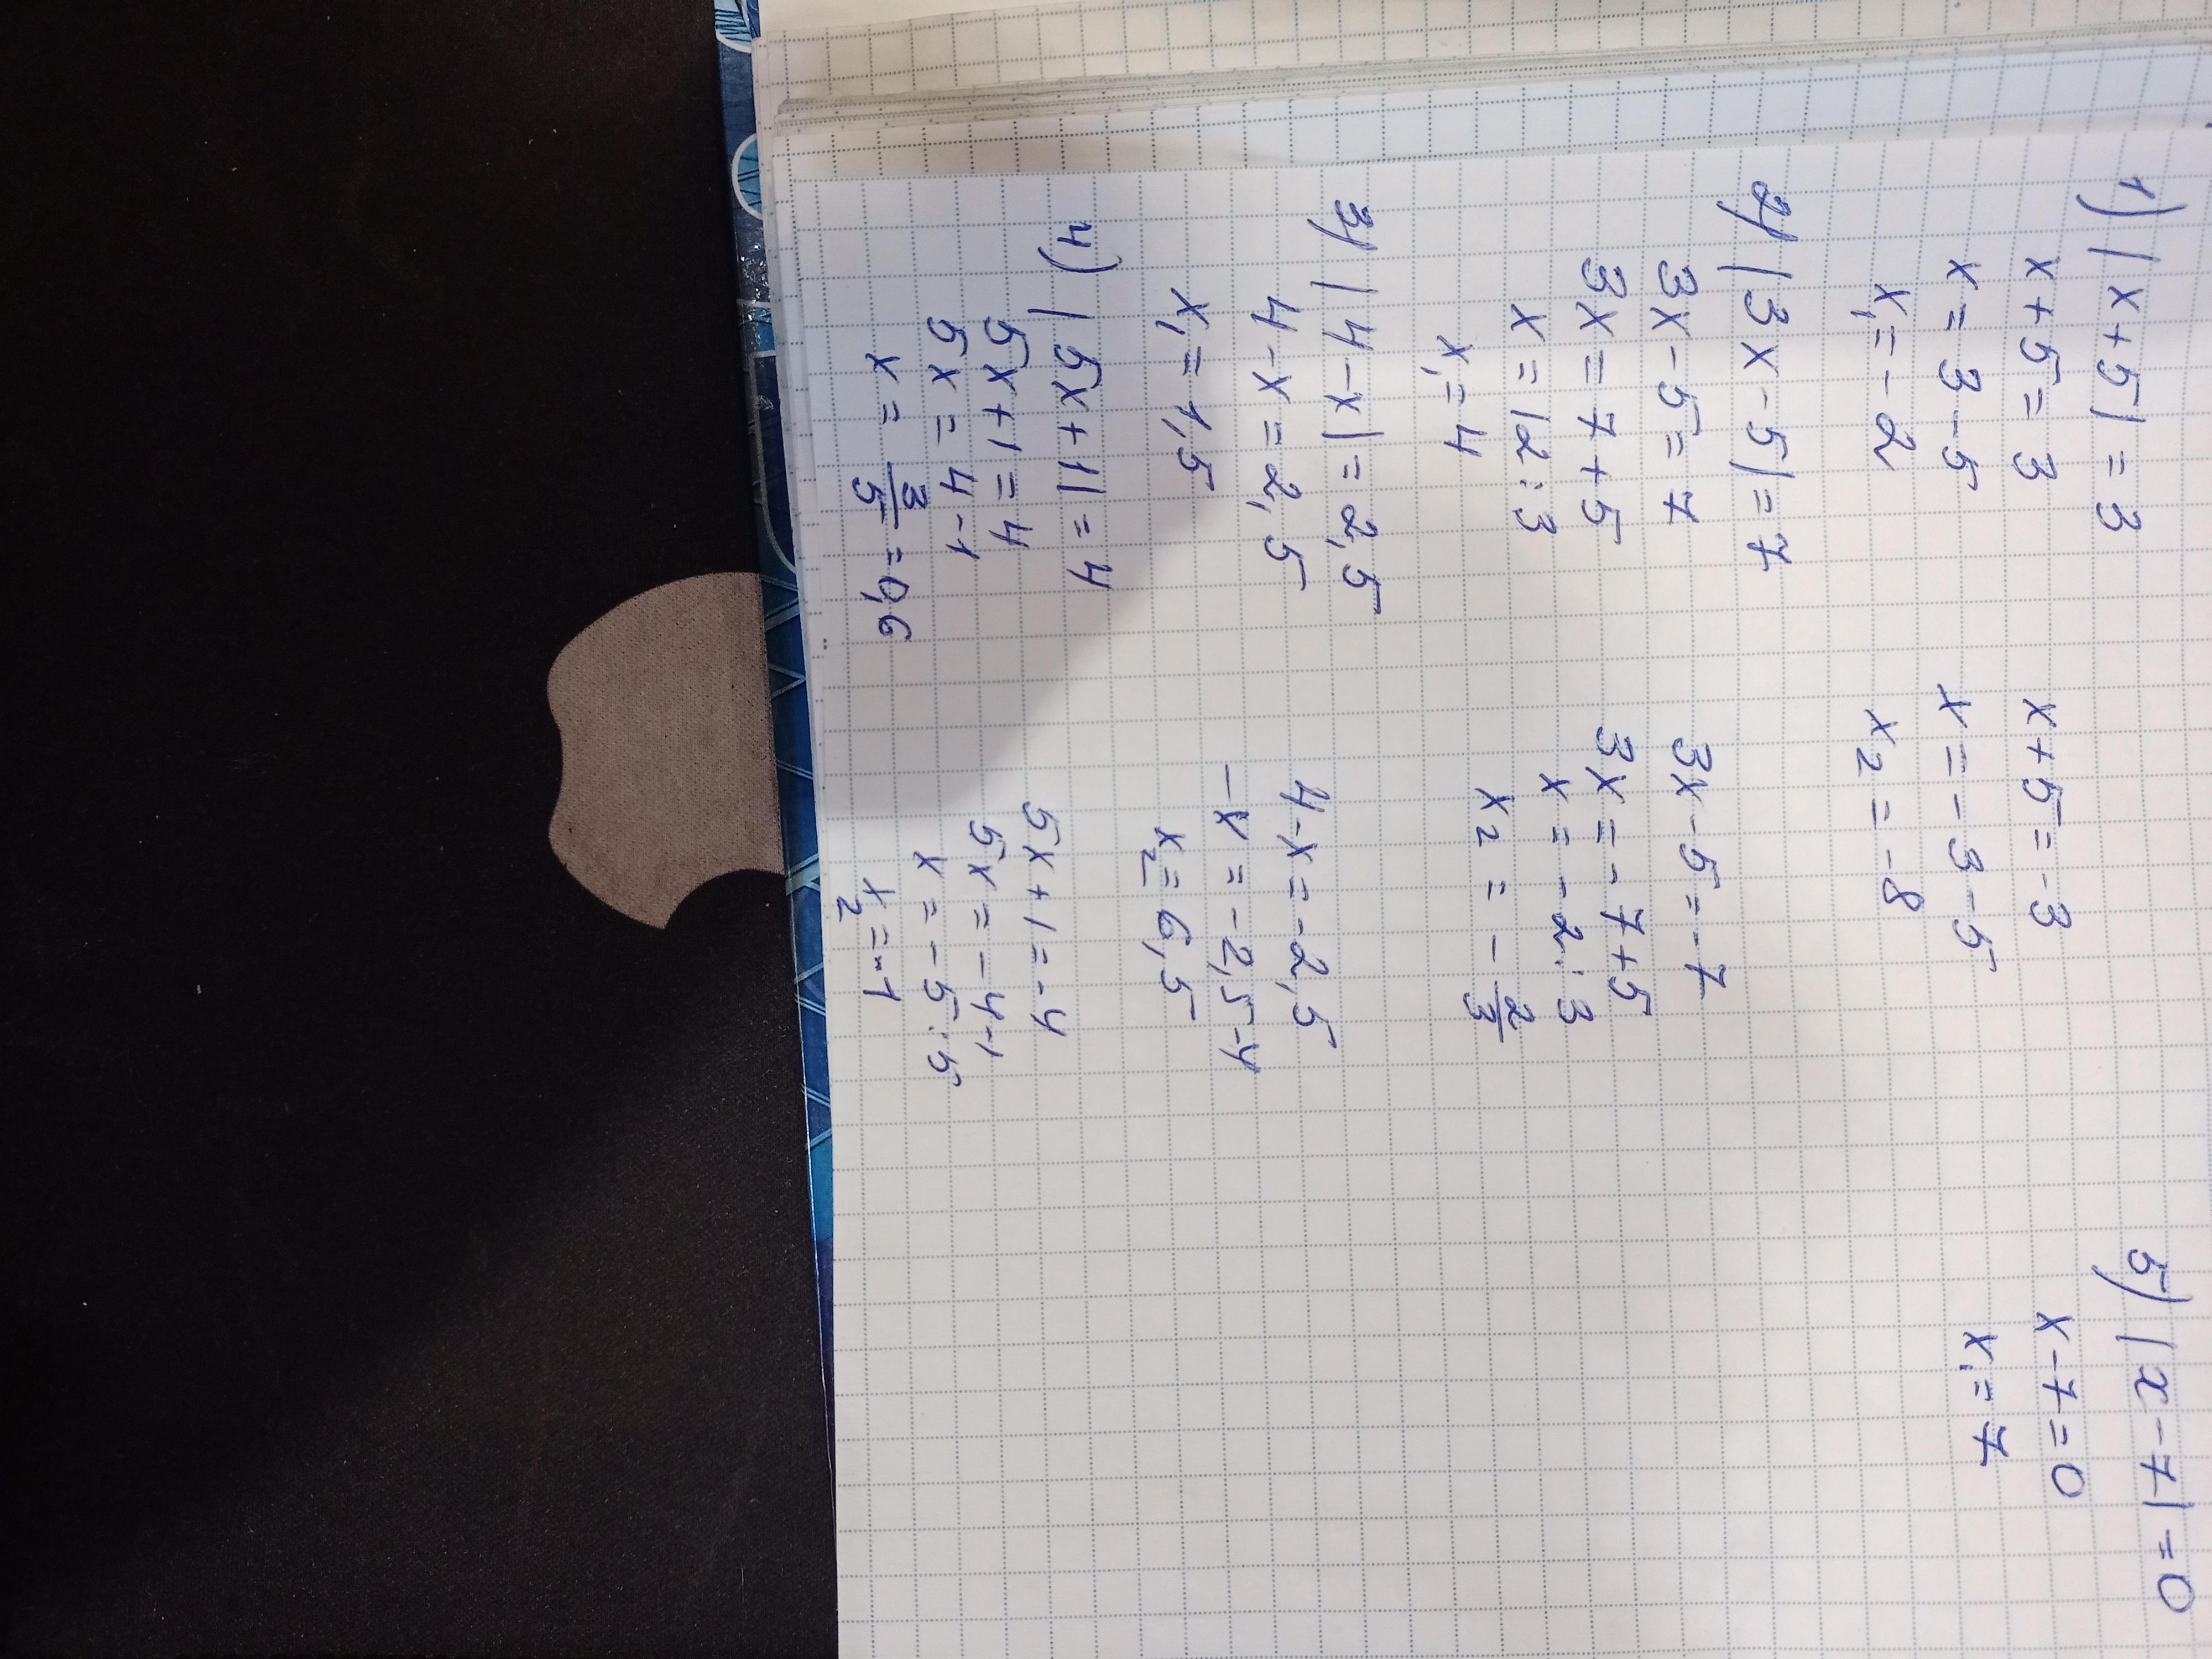 1) |x+5|=3
x+5=3
x=3-5
x₁=-2
x+5=-3
x=-3-5
x₂=-8
2) |3x-5|=7
3x-5=7
3x=7+5
x=12:3
x₁=4
3x-5=-7
3x=-7+5
x=-2:3
x₂=-2/3
3) |4-x|=2,5
4-x=2,5
x₁=1,5
4-x=-2,5
-x=-2,5-4
x₂=6,5
4) |5x+1|=4
5x+1=4
5x=4-1
x=3/5=0,6
5x+1=-4
5x=-4-1
x=-5:5
x₂=-1
5) |x-7|=0
x-7=0
x₁=7